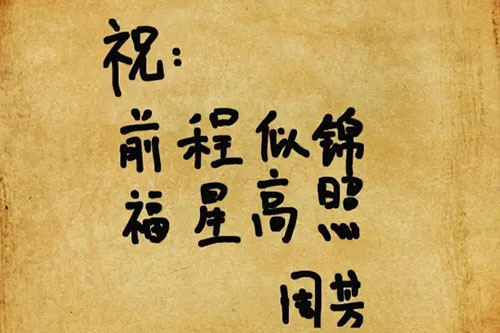 祝:
前程似锦
福星高照
周芳